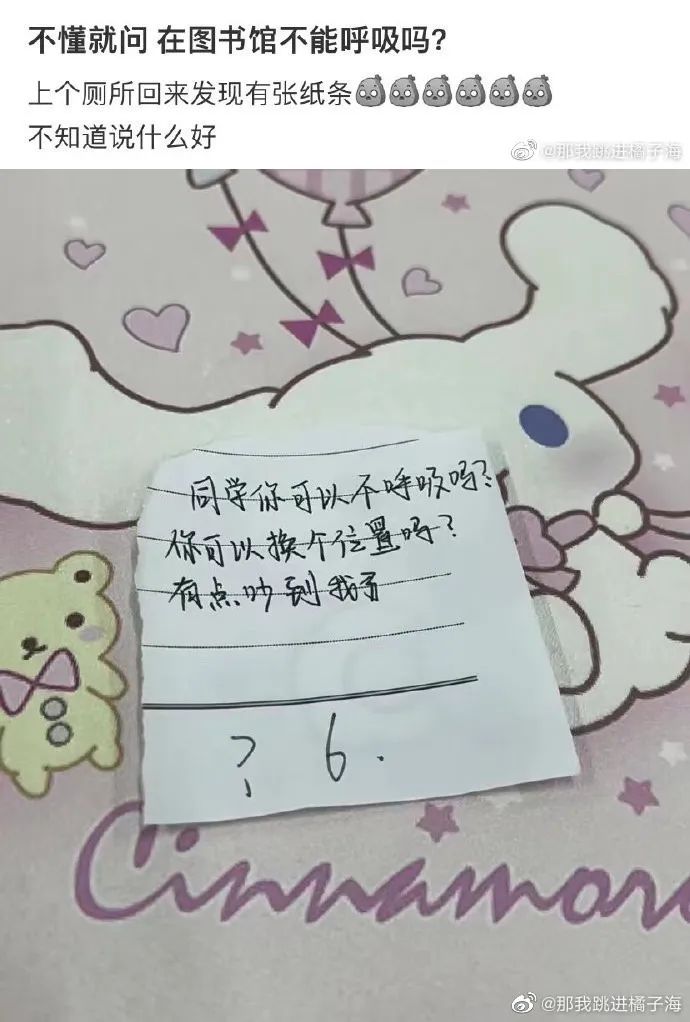 不懂就问 在图书馆不能呼吸吗?
上个厕所回来发现有张纸条
不知道说什么好
@那我跳进橘子海
同学你可以不呼吸吗?
你可以换个位置吗?
有点吵到我了
? 6.
Cinnamoro
@那我跳进橘子海